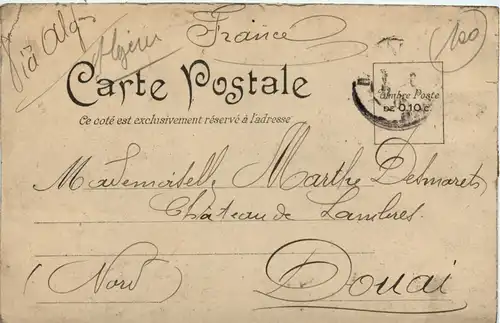 Via Alger
Algérie
France
100
Carte Postale
Ce coté est exclusivement réservé à l'adresse
Timbre Poste
DE 0,10 c.
Mademoiselle Marthe Desmarets
Château de Lambres
(Nord) Douai